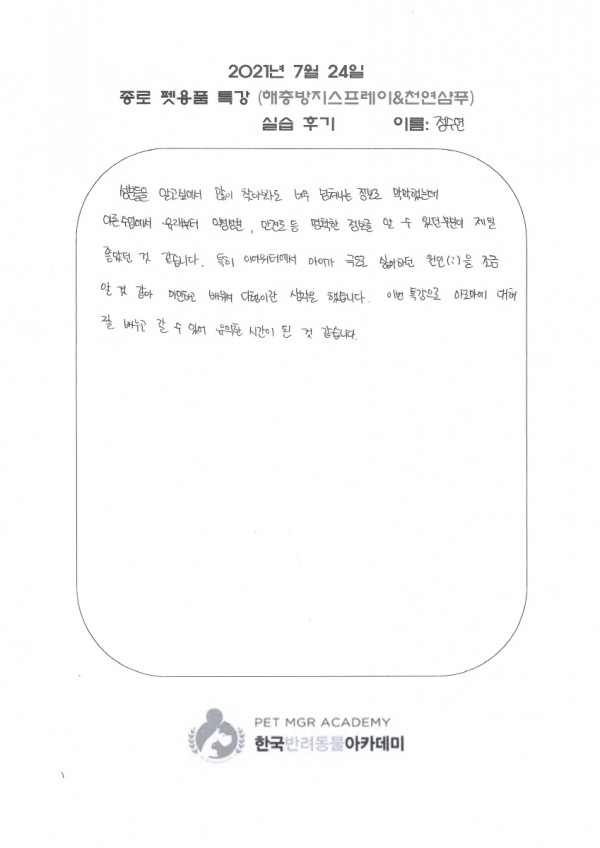 2021년 7월 24일
종로 펫용품 특강 (해충방지스프레이&천연샴푸)
실습 후기 이름: 정수연
알고싶어서 많이 찾아봐도 너무 넘쳐나는 정보로 막막했는데
다른수업에서 유래부터 안전도 등 명확한 정보를 알 수 있던부분이 제일
좋았던 것 같습니다. 특히 이어워터에서 아이가 극도로 싫어하던 원인(:)을 조금
알 것 같아 미안하고 배워서 다행이란 생각을 했습니다. 이번 특강으로 아로마에 대해
잘 배우고 갈 수 있어 유익한 시간이 된 것 같습니다.
PET MGR ACADEMY
한국반려동물아카데미